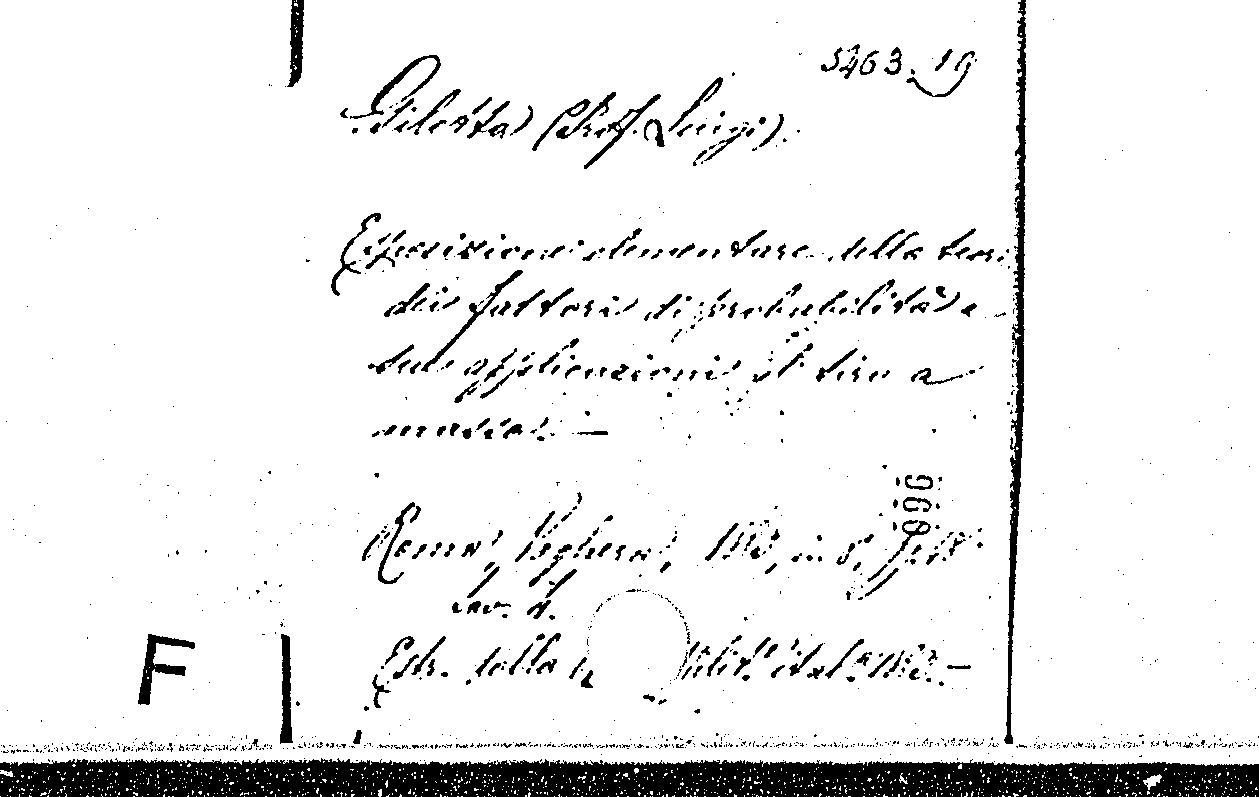 5463.19
Giletta (Prof. Luigi).
Esposizione elementare della teori
dei fattori di probabilità e
sue applicazioni al tiro a
massa. —
696
Roma, Voghera, 1883, in 8°,
tav. 1.
Estr. dalla Milit. ital. 1883. —
F